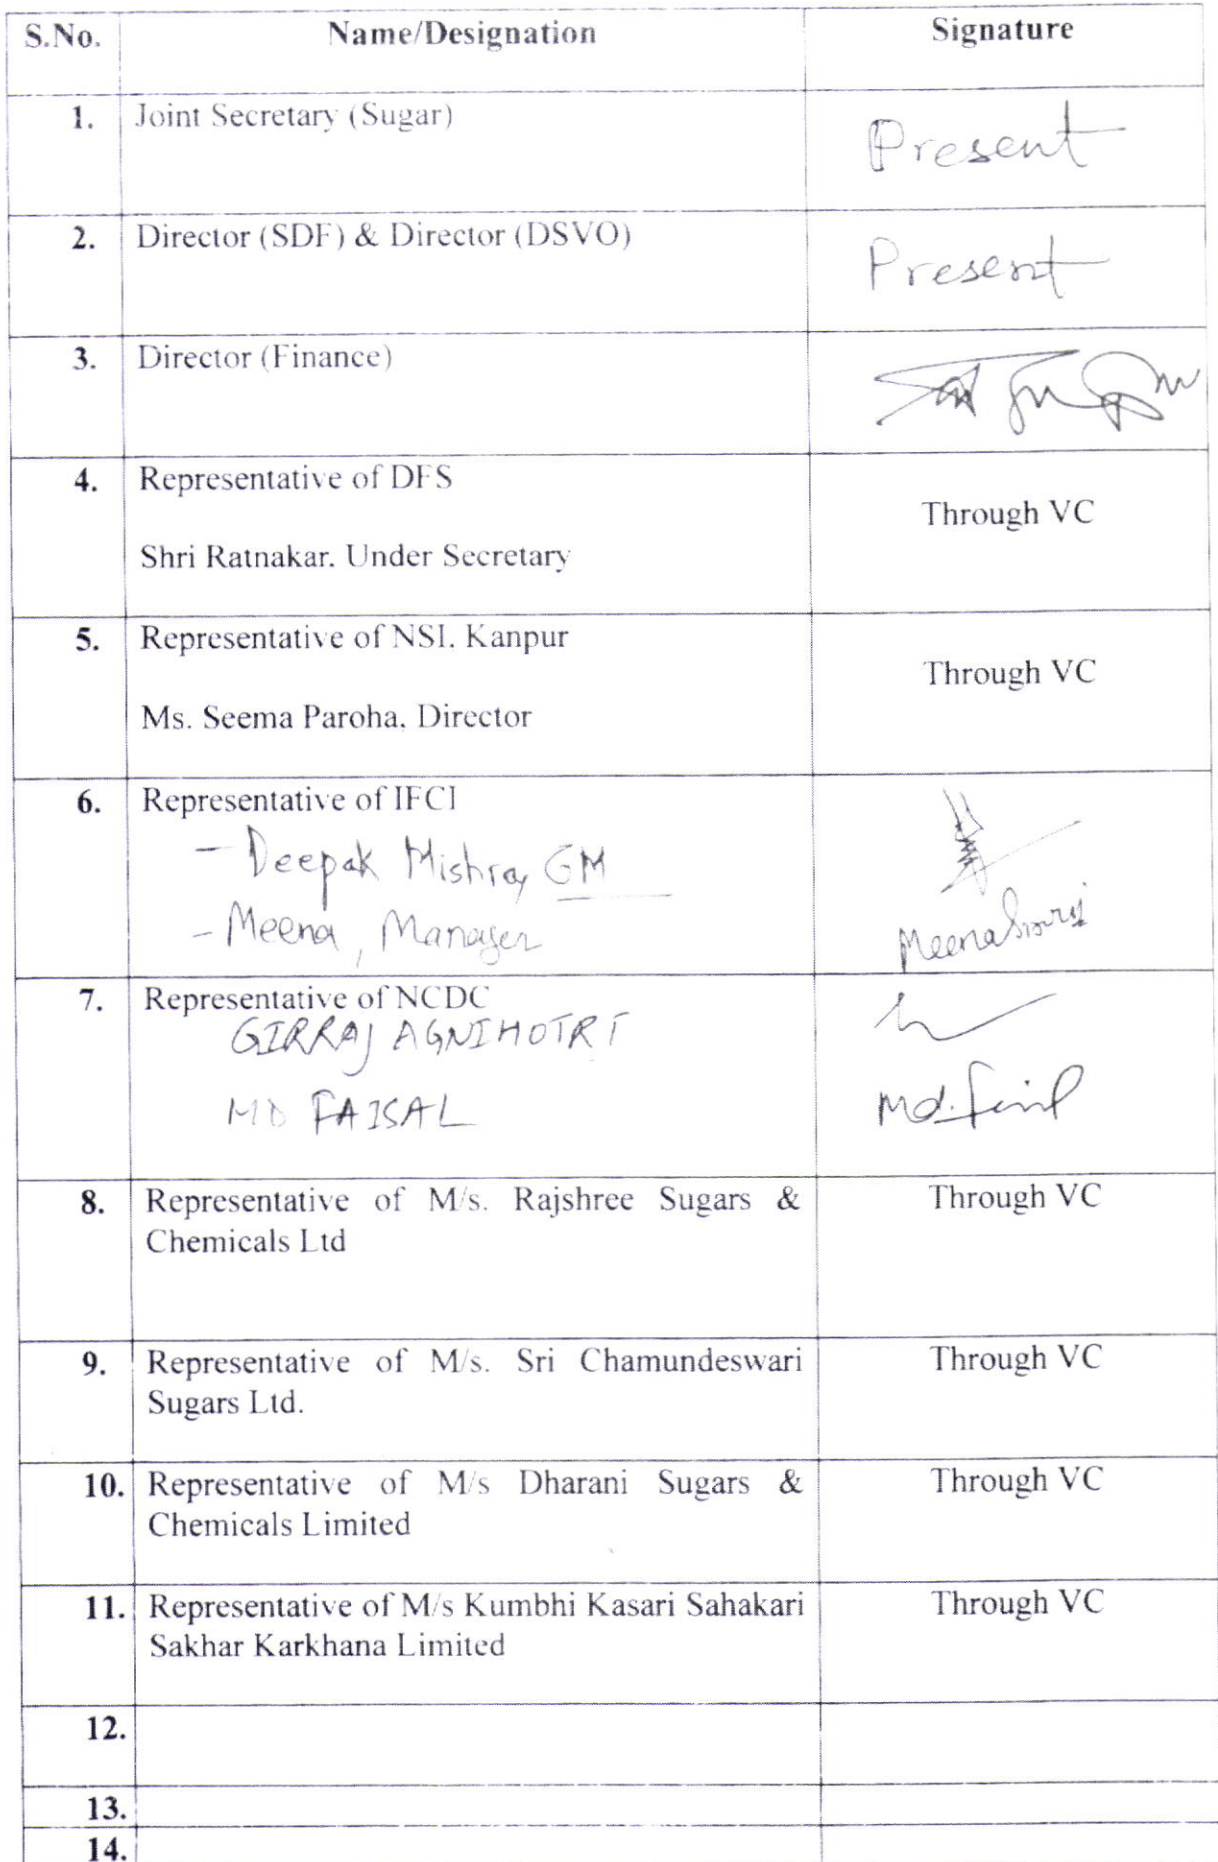 S.No. Name/Designation Signature
1. Joint Secretary (Sugar) Present
2. Director (SDF) & Director (DSVO) Present
3. Director (Finance)
4. Representative of DFS
Through VC
Shri Ratnakar. Under Secretary
5. Representative of NSI. Kanpur
Through VC
Ms. Seema Paroha. Director
6. Representative of IFCI
- Deepak Mishra, GM
- Meena, Manager
Meena
7. Representative of NCDC
GIRRAJ AGNIHOTRI
MD FAISAL Md.
8. Representative of M/s. Rajshree Sugars & Through VC
Chemicals Ltd
9. Representative of M/s. Sri Chamundeswari Through VC
Sugars Ltd.
10. Representative of M/s Dharani Sugars & Through VC
Chemicals Limited
11. Representative of M/s Kumbhi Kasari Sahakari Through VC
Sakhar Karkhana Limited
12.
13.
14.